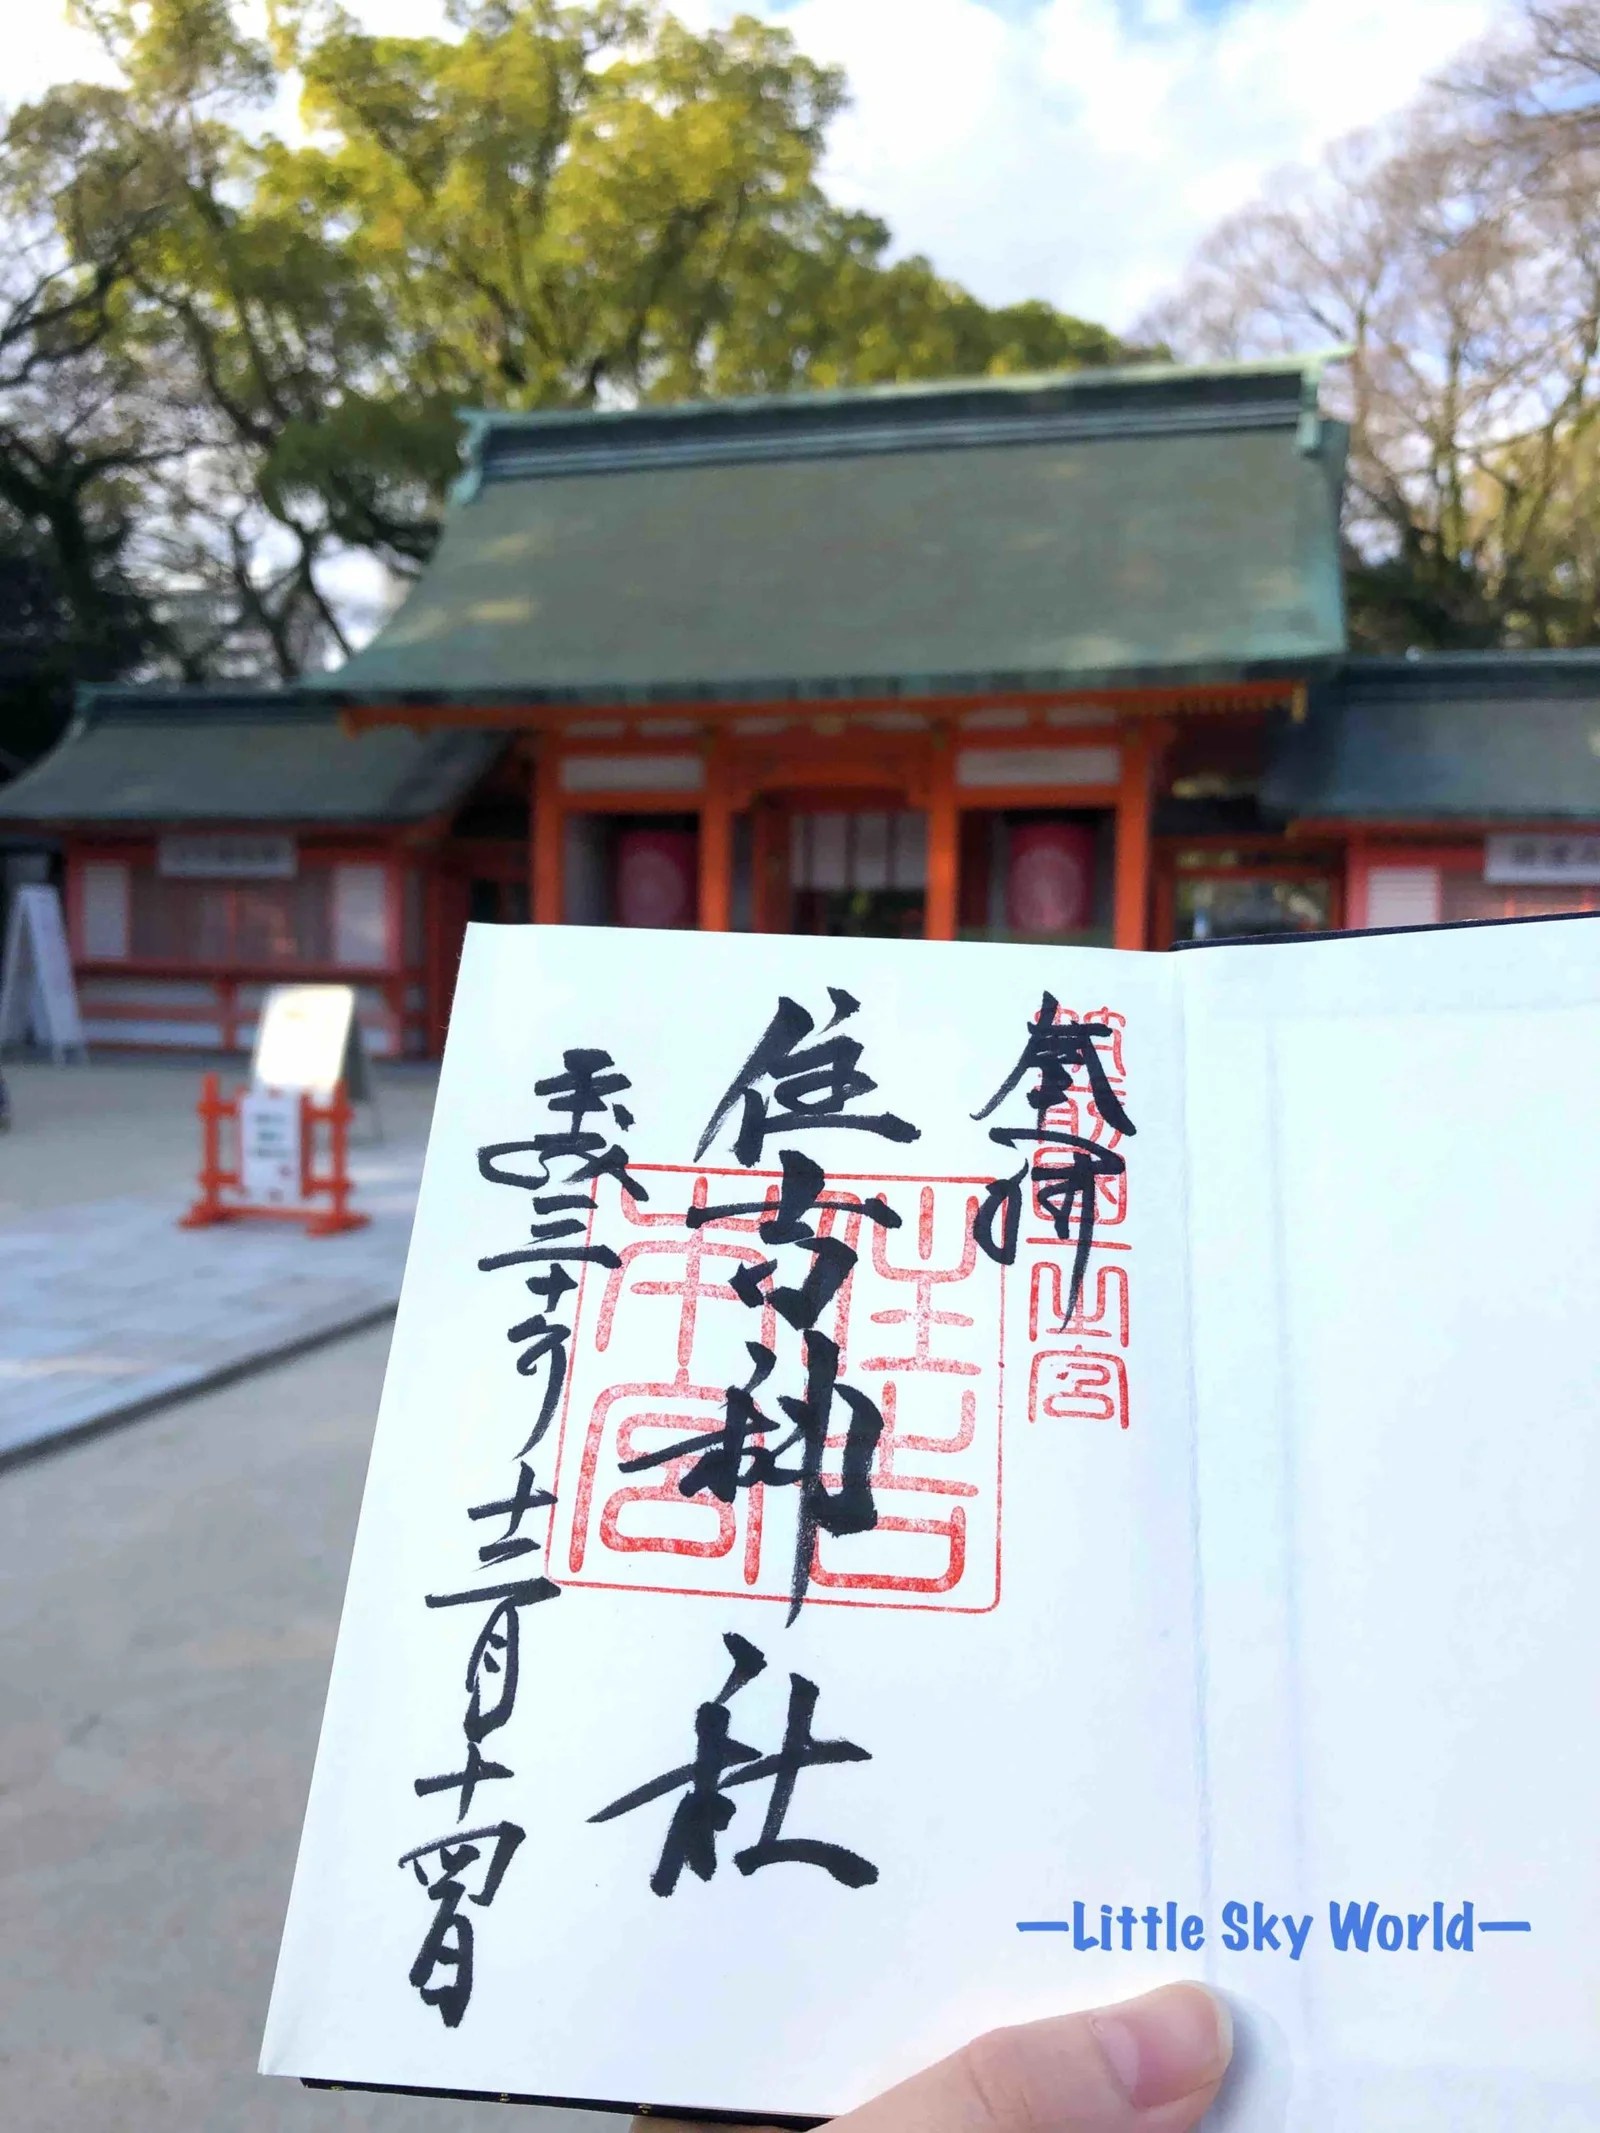 奉拝
筑前國一之宮
住吉神社
住吉
本宮
平成三十年十二月十四日
—Little Sky World—